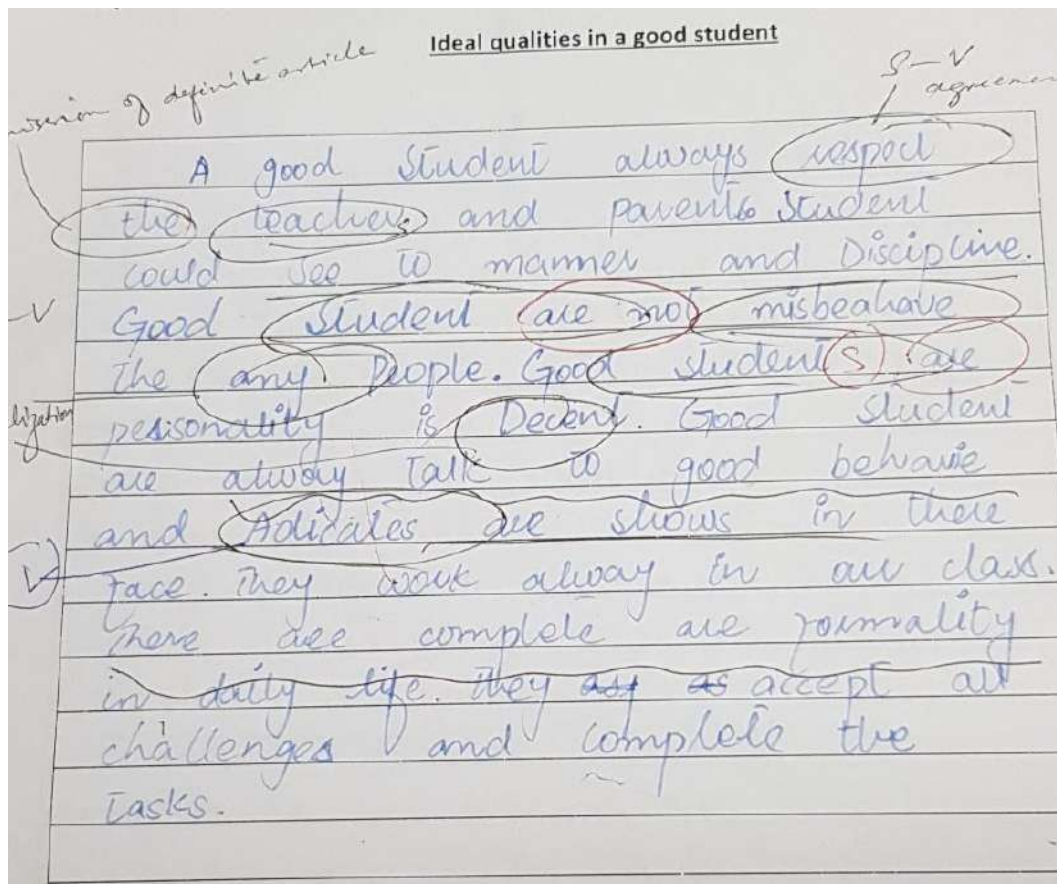 Ideal qualities in a good student
of definite article
S-V
A good student always respect
the teachers and parents student
could see to manner and Discipline.
-V
Good student are not misbeahave
the any People. Good students are
lization
personality is Decent. Good student
are alway Talk to good behavie
and Aditates are shows in there
V
face. They work alway in our class.
There are complete are formality
in daily life. they as as accept all
challenges and complete the
Tasks.